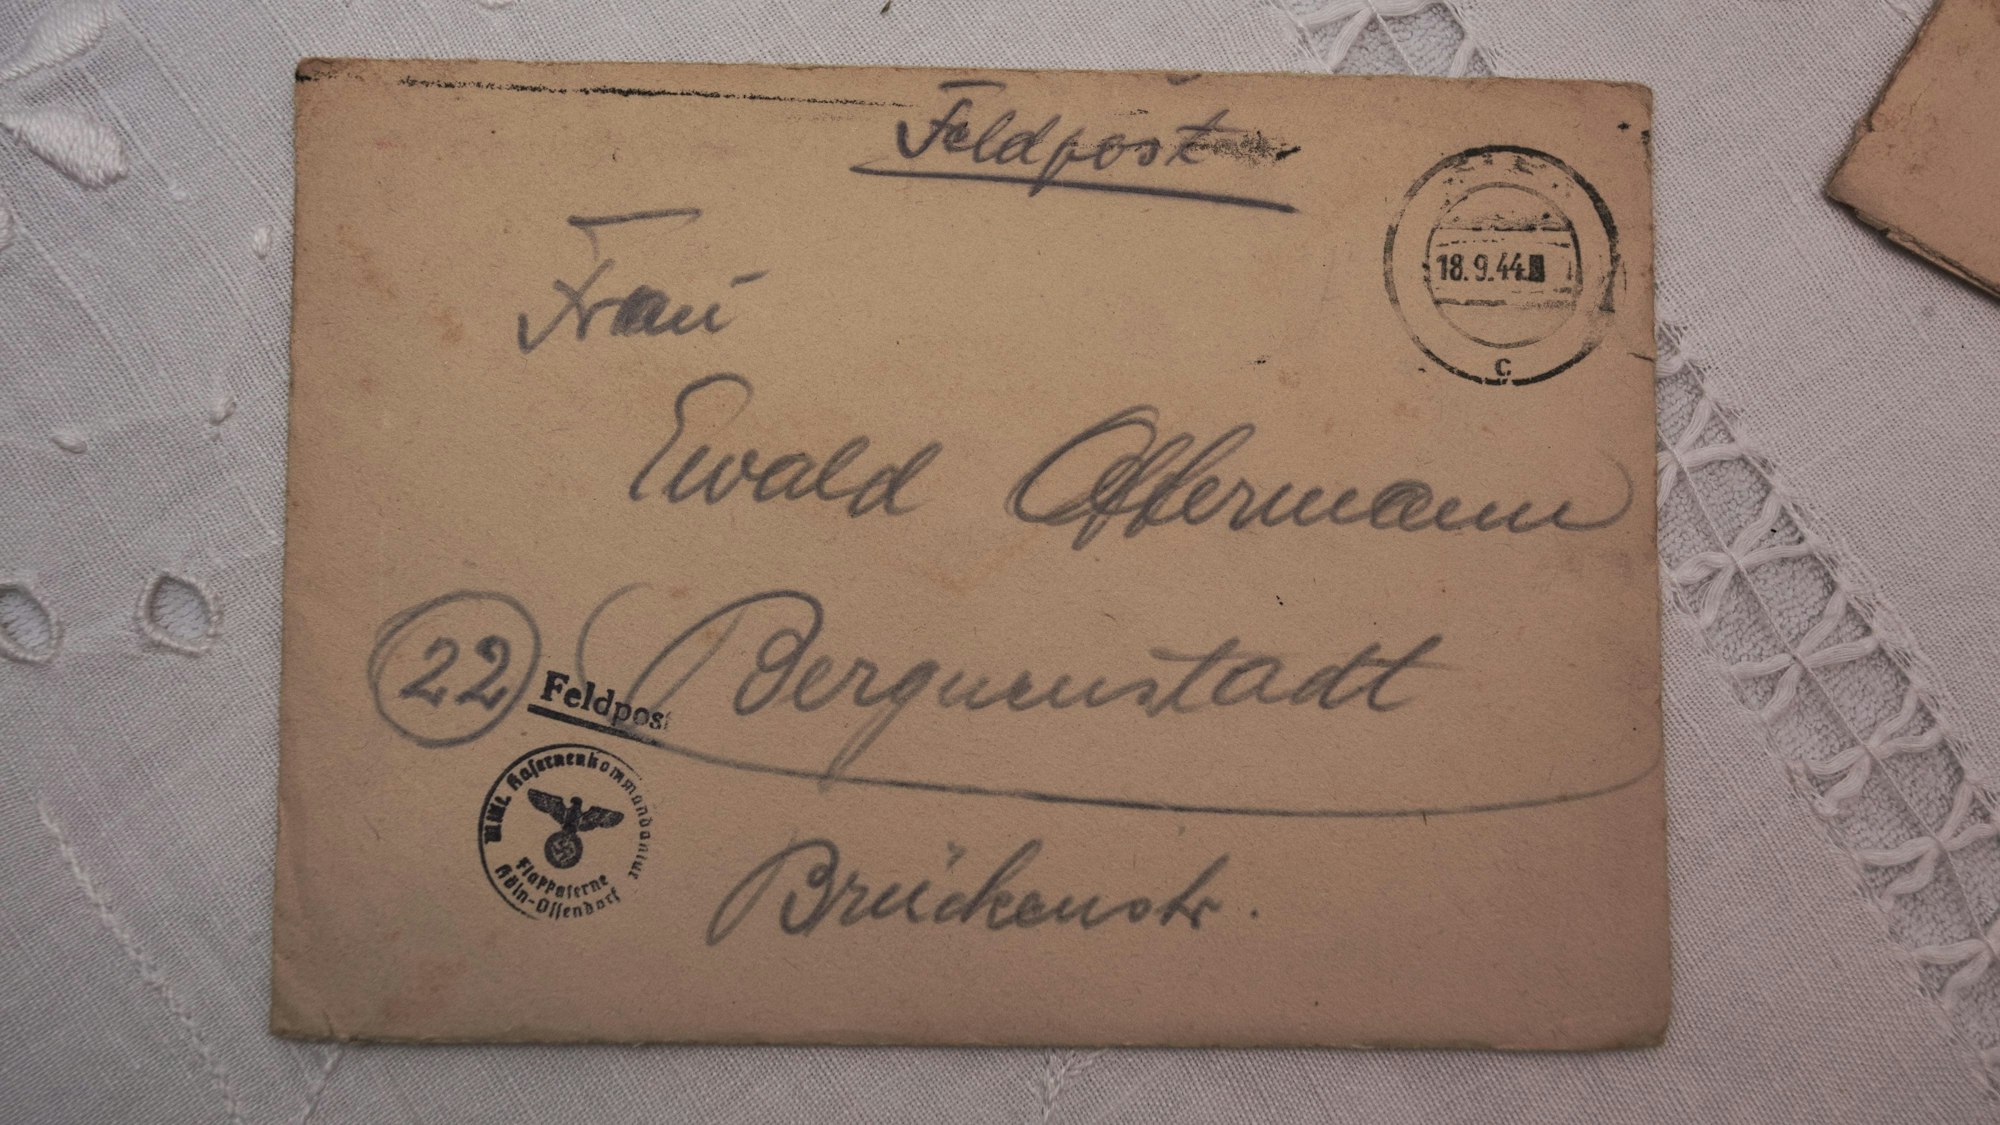 Feldpost
18.9.44
c
Frau
Ewald Offermann
22 Bergneustadt
Feldpost
Kasernenkommandantur
Flakkaserne
Köln-Ossendorf
Brückenstr.